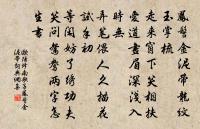 鳳髻金泥帶龍紋
玉掌梳
走來窗下笑相扶
愛道畫眉深淺入
時無
弄筆偎人久描花
試手初
等閑妨了繡功夫
笑問鴛鴦兩字怎
生書
歐陽修南歌子鳳髻金
泥帶詞典網集